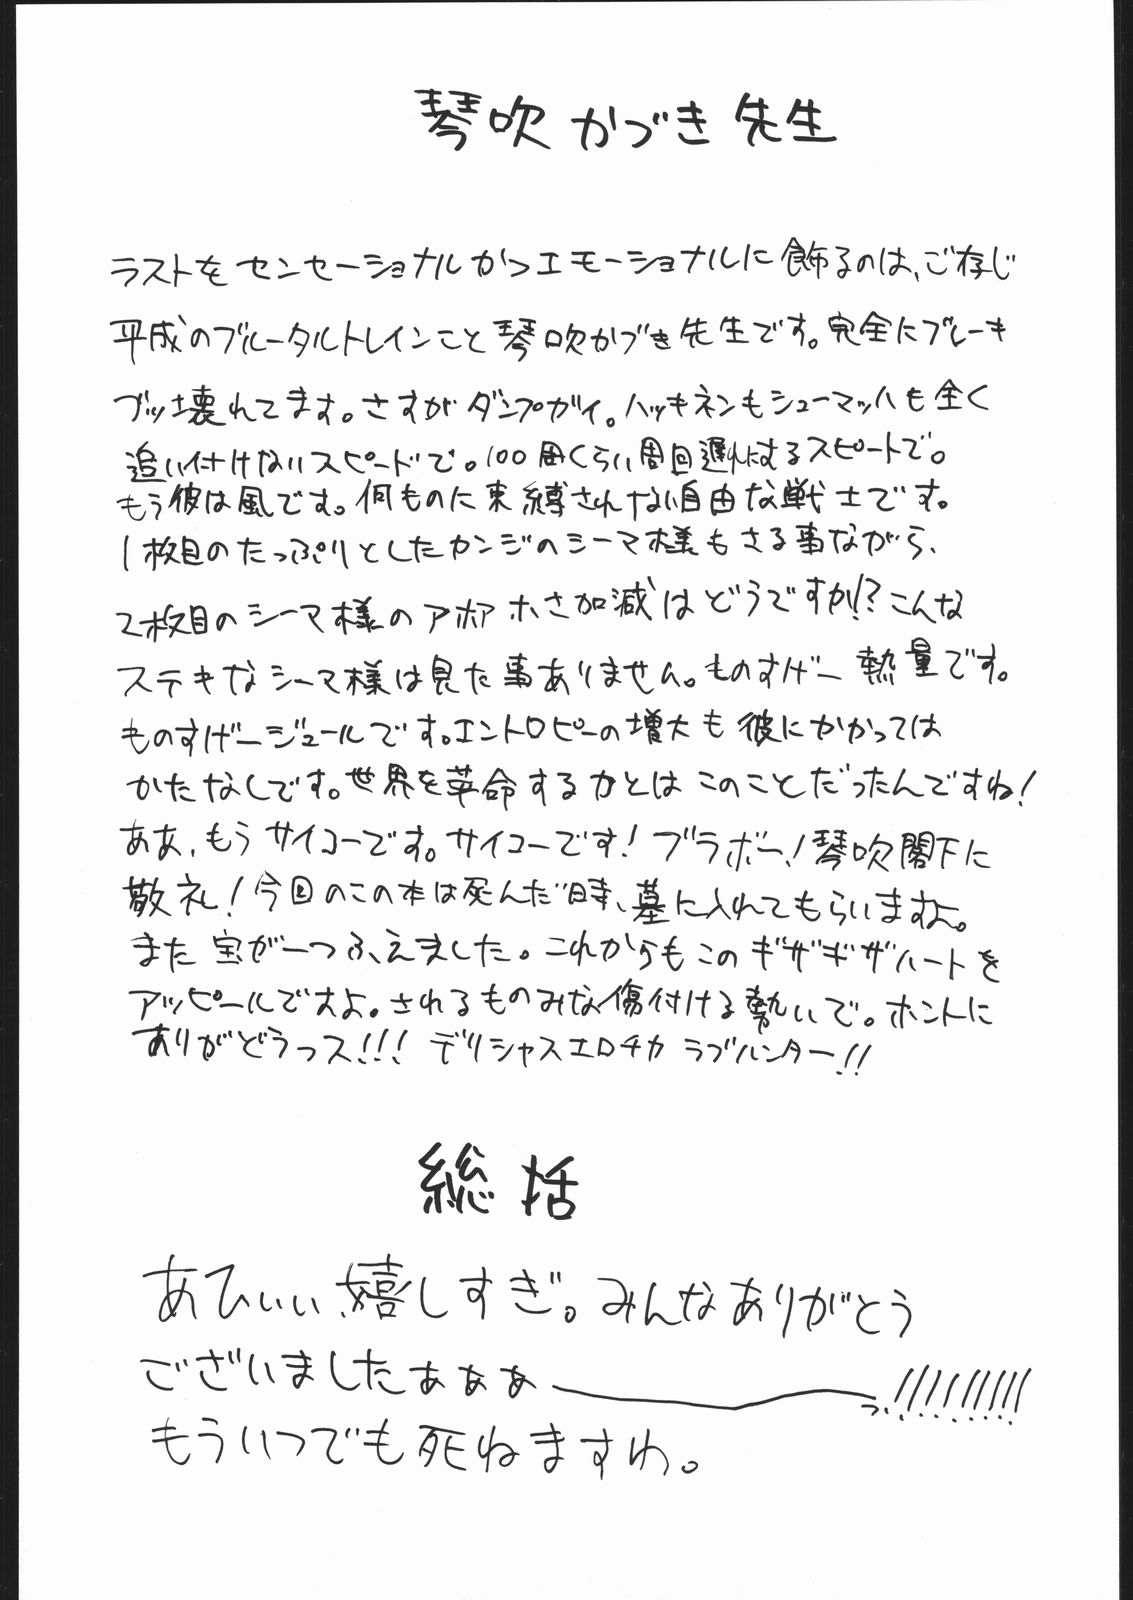 琴吹かづき先生
ラストをセンセーショナルかつエモーショナルに飾るのは、ご存じ
平成のブルータルトレインこと琴吹かづき先生です。完全にブレーキ
ブッ壊れてます。さすがダンプガイ。ハッキネンもシューマッハも全く
追い付けないスピードで。100周くらい周回遅れにするスピードで。
もう彼は風です。何ものに束縛されない自由な戦士です。
1枚目のたっぷりとしたカンジのシーマ様もさる事ながら、
2枚目のシーマ様のアホアホさ加減はどうですか!?こんな
ステキなシーマ様は見た事ありません。ものすげー熱量です。
ものすげージュールです。エントロピーの増大も彼にかかっては
かたなしです。世界を革命する力とはこのことだったんですね!
ああ、もうサイコーです。サイコーです!ブラボー!琴吹閣下に
敬礼!今回のこの本は死んだ時、墓に入れてもらいますよ。
また宝が一つふえました。これからもこのギザギザハートを
アッピールですよ。されるものみな傷付ける勢いで。ホントに
ありがどうっス!!!デリシャスエロチカラブハンター!!
総括
あひぃぃ、嬉しすぎ。みんなありがとう
ございましたぁぁぁーっ!!!!!!!!!
もういつでも死ねますわ。